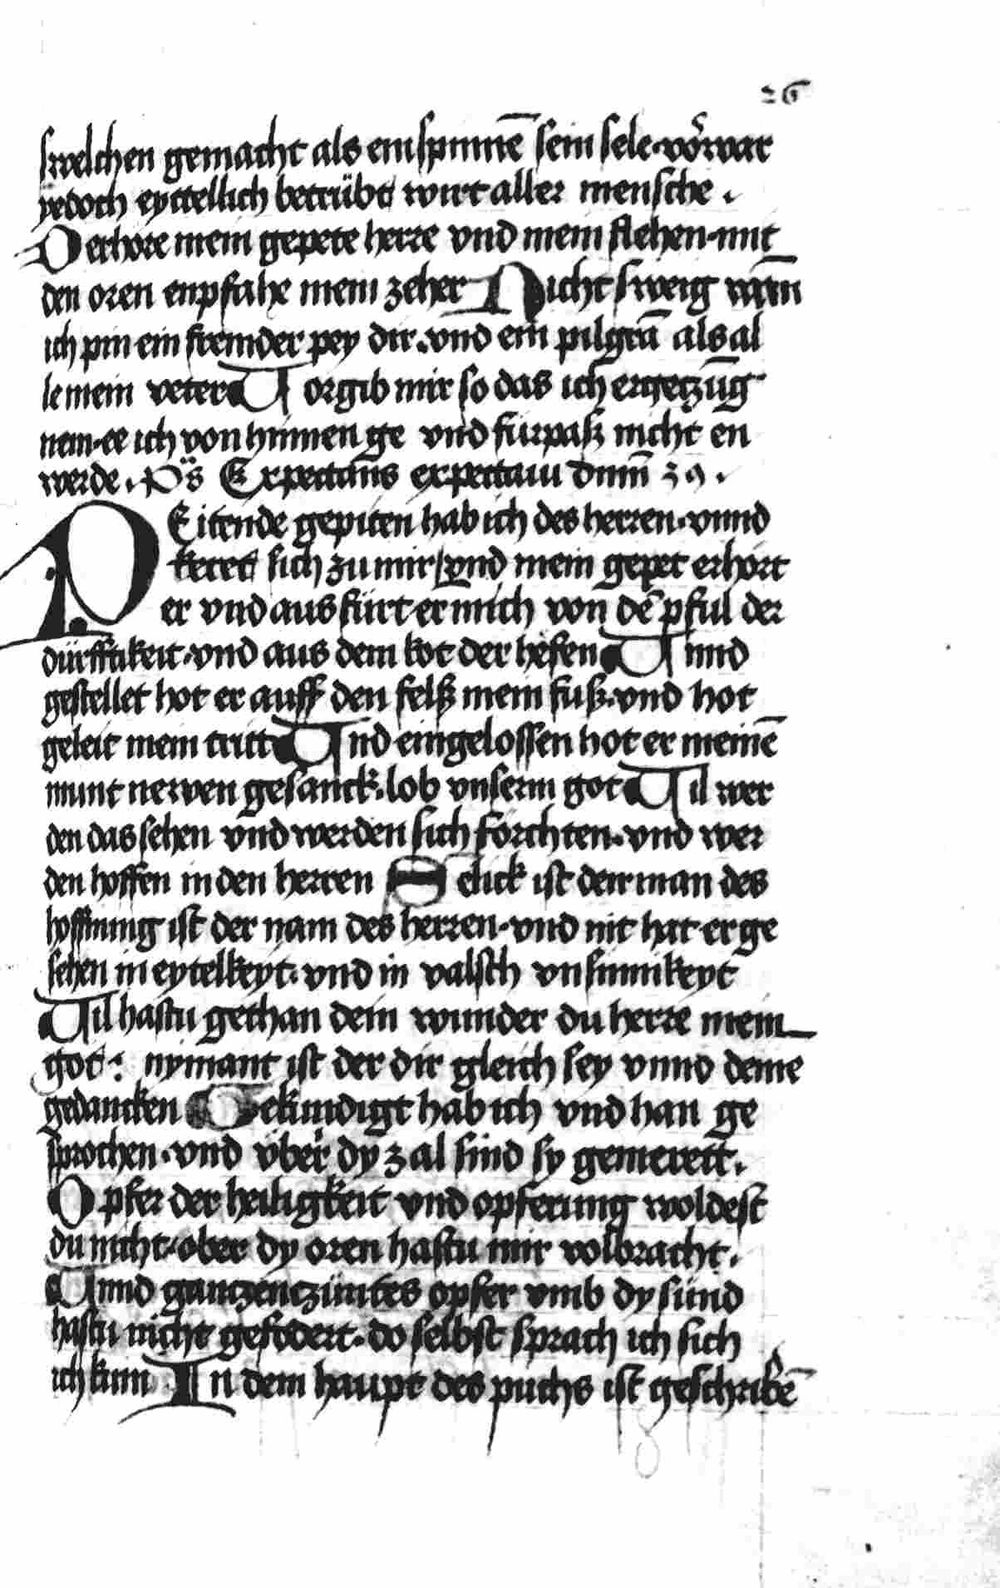 26
swelchen gemacht als ein spinnē sein sele·vorwar
yedoch eyttellich betrübt wirt aller mensche·
O erhore mein gepete herre vnd mein flehen·mit
den oren enpfahe mein zeher Nicht sweig wann
ich pin ein fremder pey dir·vnd ein pilgrā als al
le mein veter Vorgib mir so das ich ergetzūg
nem·ee ich von hinnen ge vnd fürpaß nicht en
werde· Ps Expectans expectaui dnm 39·
PEitende gepiten hab ich des herren·vnnd
keret sich zu mir vnd mein gepet erhort
er vnd aus fürt er mich von dē pful der
dürfftikeit·vnd aus dem kot der hefen Vnnd
gestellet hot er auff den felß mein fuß·vnd hot
geleit mein tritt Vnd eingelossen hot er meinē
munt newen gesanck·lob vnserm got Vil wer
den das sehen vnd werden sich forchten·vnd wer
den hoffen in den herren Selick ist der man des
hoffnung ist der nam des herren·vnd nit hat er ge
sehen in eytelkeyt·vnd in valsch vnsinnikeyt
Vil hastu gethan dein wunder du herre mein
got: nymant ist der dir gleich sey vnnd deine
gedancken Gekundigt hab ich vnd han ge
sprochen·vnd vber dy zal sind sy gemerett·
Opfer der heiligkeit vnd opferung woldest
du nicht·ober dy oren hastu mir volbracht·
Vnnd gantzenczuntes opfer vmb dy sünd
hastu nicht gefodert·do selbst sprach ich sich
ich kum In dem haupt des puchs ist geschribē